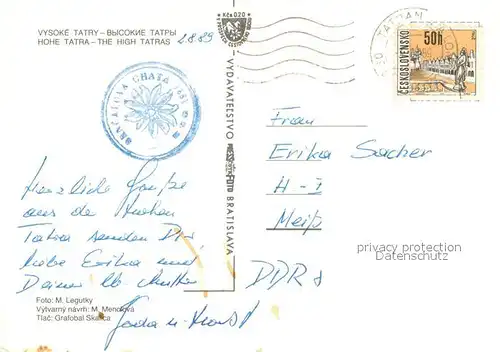 VYSOKE TATRY – ВЫСОКИЕ ТАТРЫ
HOHE TATRA – THE HIGH TATRAS
2.8.89
Kčs 0,20
ČESKOSLOVENSKO
50h
CHATA
VYDAVATEĽSTVO
BRATISLAVA
Herzliche Grüße
aus der Hohen
Tatra senden Dir
liebe Erika und
Deiner lb. Mutter
Gerda u. Horst
Frau
Erika Sacher
H-I
Meiß
DDR
privacy protection
Datenschutz
Foto: M. Legutky
Výtvarný návrh: M. Menclová
Tlač: Grafobal Skalica